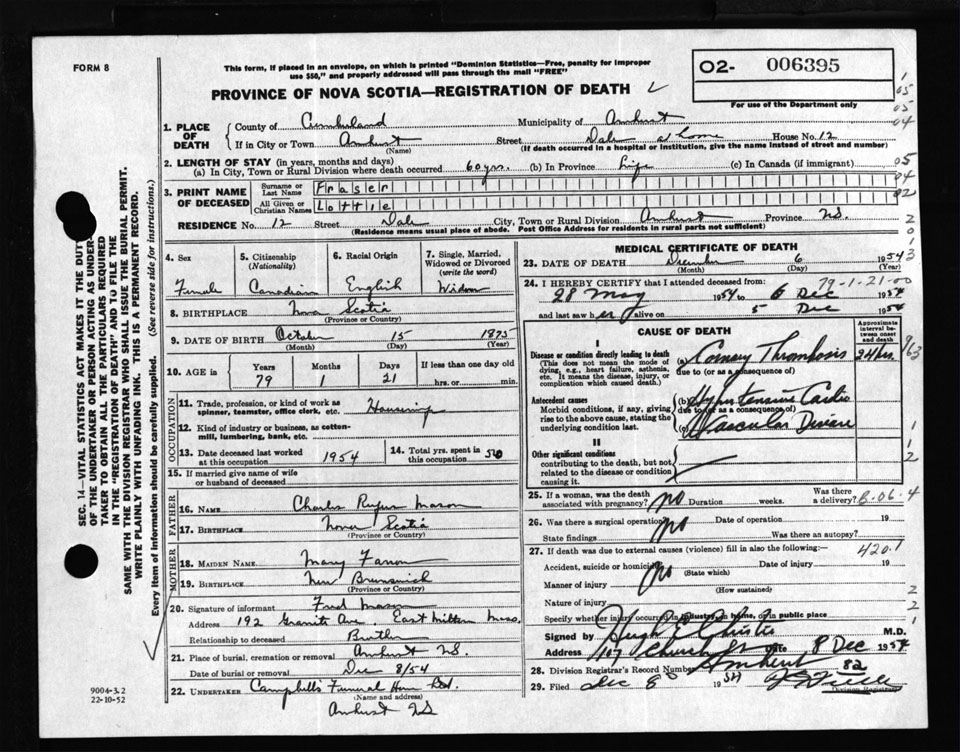 FORM 8
This form, if placed in an envelope, on which is printed "Dominion Statistics—Free, penalty for improper
use $50," and properly addressed will pass through the mail "FREE"
PROVINCE OF NOVA SCOTIA—REGISTRATION OF DEATH
02- 006395
For use of the Department only
1. PLACE OF DEATH
County of Cumberland Municipality of Amherst
If in City or Town Amherst Street Dale at home House No. 12
(Name) (If death occurred in a hospital or institution, give the name instead of street and number)
2. LENGTH OF STAY (in years, months and days)
(a) In City, Town or Rural Division where death occurred 60 yrs. (b) In Province Life (c) In Canada (if immigrant)
3. PRINT NAME OF DECEASED
Surname or Last Name Fraser
All Given or Christian Names Lottie
RESIDENCE No. 12 Street Dale City, Town or Rural Division Amherst Province N.S.
(Residence means usual place of abode. Post Office Address for residents in rural parts not sufficient)
4. Sex
Female
5. Citizenship
(Nationality)
Canadian
6. Racial Origin
English
7. Single, Married,
Widowed or Divorced
(write the word)
Widow
8. BIRTHPLACE Nova Scotia
(Province or Country)
9. DATE OF BIRTH October 15 1875
(Month) (Day) (Year)
10. AGE in
Years Months Days
79 1 21
If less than one day
hrs. or min.
OCCUPATION
11. Trade, profession, or kind of work as
spinner, teamster, office clerk, etc.
12. Kind of industry or business, as cotton-
mill, lumbering, bank, etc.
13. Date deceased last worked
at this occupation 1954
14. Total yrs. spent in
this occupation 50
15. If married give name of wife
or husband of deceased
FATHER
16. NAME Charles Rufus Mason
17. BIRTHPLACE Nova Scotia
(Province or Country)
MOTHER
18. MAIDEN NAME Mary
19. BIRTHPLACE New Brunswick
(Province or Country)
20. Signature of informant Fred Mason
Address 192 Granite Ave. East Milton Mass.
Relationship to deceased Brother
21. Place of burial, cremation or removal Amherst N.S.
Date of burial or removal Dec 8/54
22. UNDERTAKER Campbell's Funeral Home Ltd.
(Name and address)
Amherst NS
MEDICAL CERTIFICATE OF DEATH
23. DATE OF DEATH December 6 1954
(Month) (Day)
79-1-21-00
24. I HEREBY CERTIFY that I attended deceased from:
28 May 1954 to 6 Dec 1954
and last saw her alive on 5 Dec 1954
CAUSE OF DEATH
Approximate interval between onset and death
I
Disease or condition directly leading to death
(This does not mean the mode of
dying, e.g., heart failure, asthenia,
etc. It means the disease, injury, or
complication which caused death.)
(a) Coronary Thrombosis 24 hrs.
due to (or as a consequence of)
Antecedent causes
Morbid conditions, if any, giving
rise to the above cause, stating the
underlying condition last.
(b) Hypertensive Cardio
due to (or as a consequence of)
(c) Vascular Disease
II
Other significant conditions
contributing to the death, but not
related to the disease or condition
causing it.
25. If a woman, was the death
associated with pregnancy? no Duration weeks. Was there
a delivery?
8-06-4
26. Was there a surgical operation? no Date of operation 19
State findings Was there an autopsy?
27. If death was due to external causes (violence) fill in also the following:—
420.1
Accident, suicide or homicide? no Date of injury 19
(State which)
Manner of injury
(How sustained)
Nature of injury
Specify whether injury occurred in industry, in home, or in public place
Signed by Hugh E. Christie M.D.
Address 107 Church St Date 8 Dec 1954
Amherst
28. Division Registrar's Record Number 82
29. Filed Dec 8 1954
Division Registrar
SEC. 14—VITAL STATISTICS ACT MAKES IT THE DUTY
OF THE UNDERTAKER OR PERSON ACTING AS UNDER-
TAKER TO OBTAIN ALL THE PARTICULARS REQUIRED
IN THE "REGISTRATION OF DEATH" AND TO FILE THE
SAME WITH THE DIVISION REGISTRAR WHO SHALL ISSUE THE BURIAL PERMIT.
WRITE PLAINLY WITH UNFADING INK. THIS IS A PERMANENT RECORD.
Every item of information should be carefully supplied. (See reverse side for instructions.)
9004-3.2
22-10-52